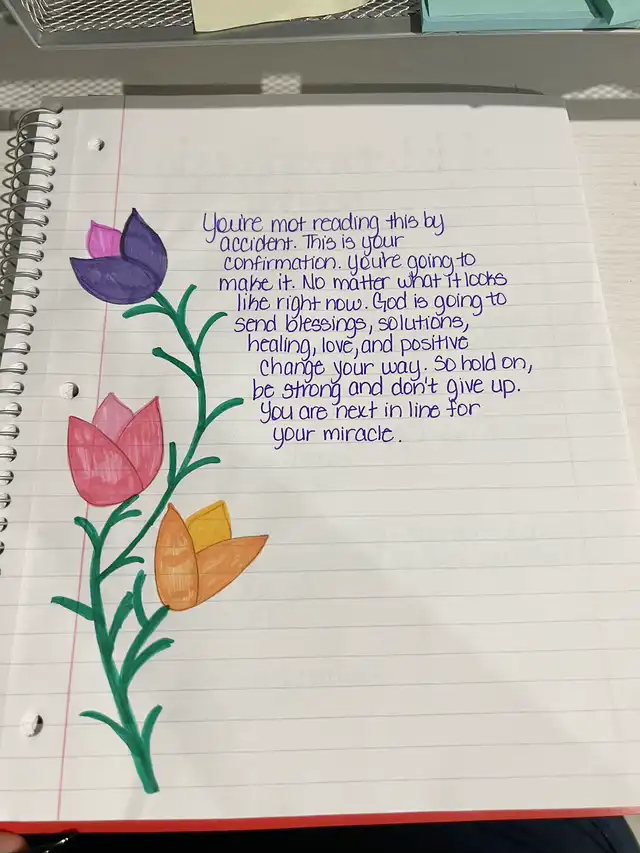 You're not reading this by
accident. This is your
confirmation. you're going to
make it. No matter what it looks
like right now. God is going to
send blessings, solutions,
healing, love, and positive
change your way. So hold on,
be strong and don't give up.
You are next in line for
your miracle.